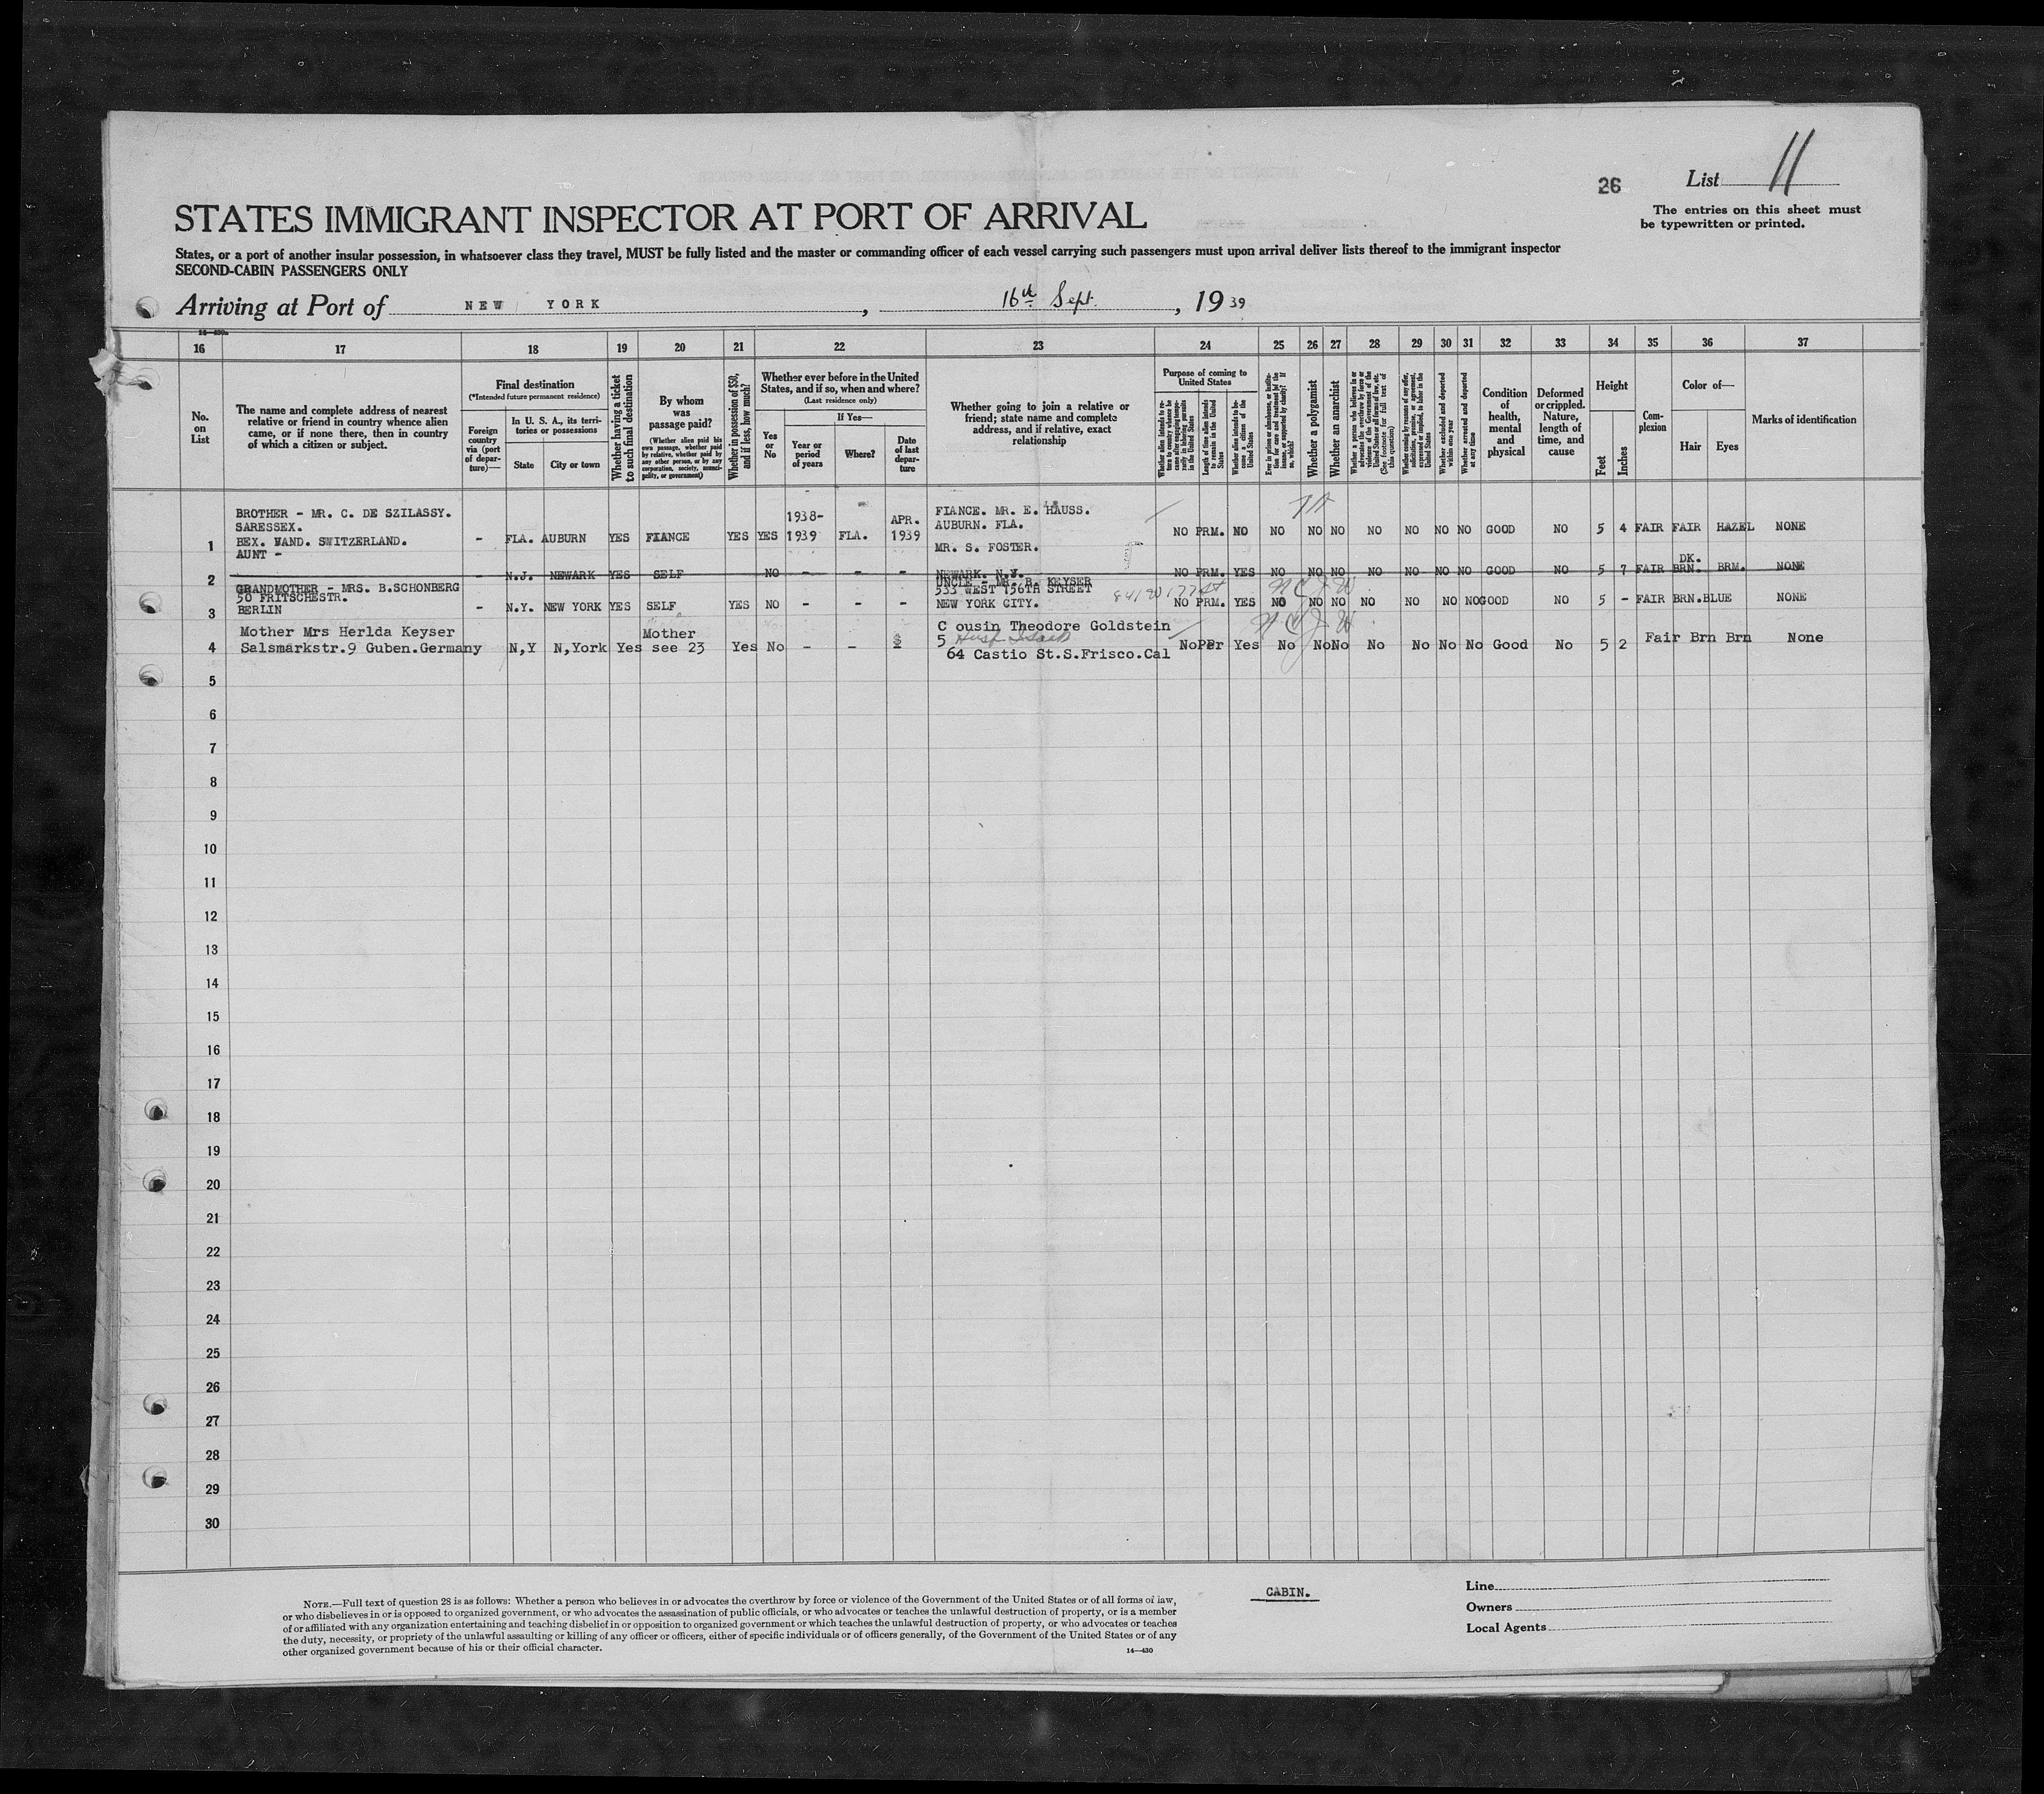 26
List 11
The entries on this sheet must
be typewritten or printed.
STATES IMMIGRANT INSPECTOR AT PORT OF ARRIVAL
States, or a port of another insular possession, in whatsoever class they travel, MUST be fully listed and the master or commanding officer of each vessel carrying such passengers must upon arrival deliver lists thereof to the immigrant inspector
SECOND-CABIN PASSENGERS ONLY
Arriving at Port of NEW YORK, 16th Sept., 1939
14—430a
16 17 18 19 20 21 22 23 24 25 26 27 28 29 30 31 32 33 34 35 36 37
No.
on
List
The name and complete address of nearest
relative or friend in country whence alien
came, or if none there, then in country
of which a citizen or subject.
Final destination
(*Intended future permanent residence)
Foreign
country
via (port
of depar-
ture)—
In U. S. A., its terri-
tories or possessions
State
City or town
Whether having a ticket
to such final destination
By whom
was
passage paid?
(Whether alien paid his
own passage, whether paid
by relative, whether paid by
any other person, or by any
corporation, society, munici-
pality, or government)
Whether in possession of $50,
and if less, how much?
Whether ever before in the United
States, and if so, when and where?
(Last residence only)
Yes
or
No
If Yes—
Year or
period
of years
Where?
Date
of last
depar-
ture
Whether going to join a relative or
friend; state name and complete
address, and if relative, exact
relationship
Purpose of coming to
United States
Whether alien intends to re-
turn to country whence he
came after engaging tempo-
rarily in laboring pursuits
in the United States
Length of time alien intends
to remain in the United
States
Whether alien intends to be-
come a citizen of the
United States
Ever in prison or almshouse, or institu-
tion for care and treatment of the
insane, or supported by charity? If
so, which?
Whether a polygamist
Whether an anarchist
Whether a person who believes in or
advocates the overthrow by force or
violence of the Government of the
United States or all forms of law, etc.
(See footnote for full text of
this question)
Whether coming by reason of any offer,
solicitation, promise, or agreement,
expressed or implied, to labor in the
United States
Whether excluded and deported
within one year
Whether arrested and deported
at any time
Condition
of
health,
mental
and
physical
Deformed
or crippled.
Nature,
length of
time, and
cause
Height
Feet
Inches
Com-
plexion
Color of—
Hair
Eyes
Marks of identification
BROTHER - MR. C. DE SZILASSY.
SARESSEX.
BEX. WAND. SWITZERLAND.
1 - FLA. AUBURN YES FIANCE YES YES 1938-1939 FLA. APR. 1939
FIANCE. MR. E. HAUSS.
AUBURN. FLA.
NO PRM. NO NO NO NO NO NO NO NO GOOD NO 5 4 FAIR FAIR HAZEL NONE
AUNT -
2 - N.J. NEWARK YES SELF NO - - -
MR. S. FOSTER.
NEWARK. N.J.
NO PRM. YES NO NO NO NO NO NO NO GOOD NO 5 7 FAIR DK. BRN. BRM. NONE
GRANDMOTHER - MRS. B.SCHONBERG
50 FRITSCHESTR.
BERLIN
3 - N.Y. NEW YORK YES SELF YES NO - - -
UNCLE - MR. B. KEYSER
533 WEST 156TH STREET
NEW YORK CITY.
NO PRM. YES NO NO NO NO NO NO NO GOOD NO 5 - FAIR BRN. BLUE NONE
Mother Mrs Herlda Keyser
Salsmarkstr.9 Guben.Germany
4 N,Y N,York Yes Mother see 23 Yes No - -
C ousin Theodore Goldstein
5
64 Castio St.S.Frisco.Cal
No Per Yes No No No No No No No Good No 5 2 Fair Brn Brn None
5
6
7
8
9
10
11
12
13
14
15
16
17
18
19
20
21
22
23
24
25
26
27
28
29
30
NOTE.—Full text of question 28 is as follows: Whether a person who believes in or advocates the overthrow by force or violence of the Government of the United States or of all forms of law,
or who disbelieves in or is opposed to organized government, or who advocates the assassination of public officials, or who advocates or teaches the unlawful destruction of property, or is a member
of or affiliated with any organization entertaining and teaching disbelief in or opposition to organized government or which teaches the unlawful destruction of property, or who advocates or teaches
the duty, necessity, or propriety of the unlawful assaulting or killing of any officer or officers, either of specific individuals or of officers generally, of the Government of the United States or of any
other organized government because of his or their official character.
14—430
CABIN.
Line
Owners
Local Agents